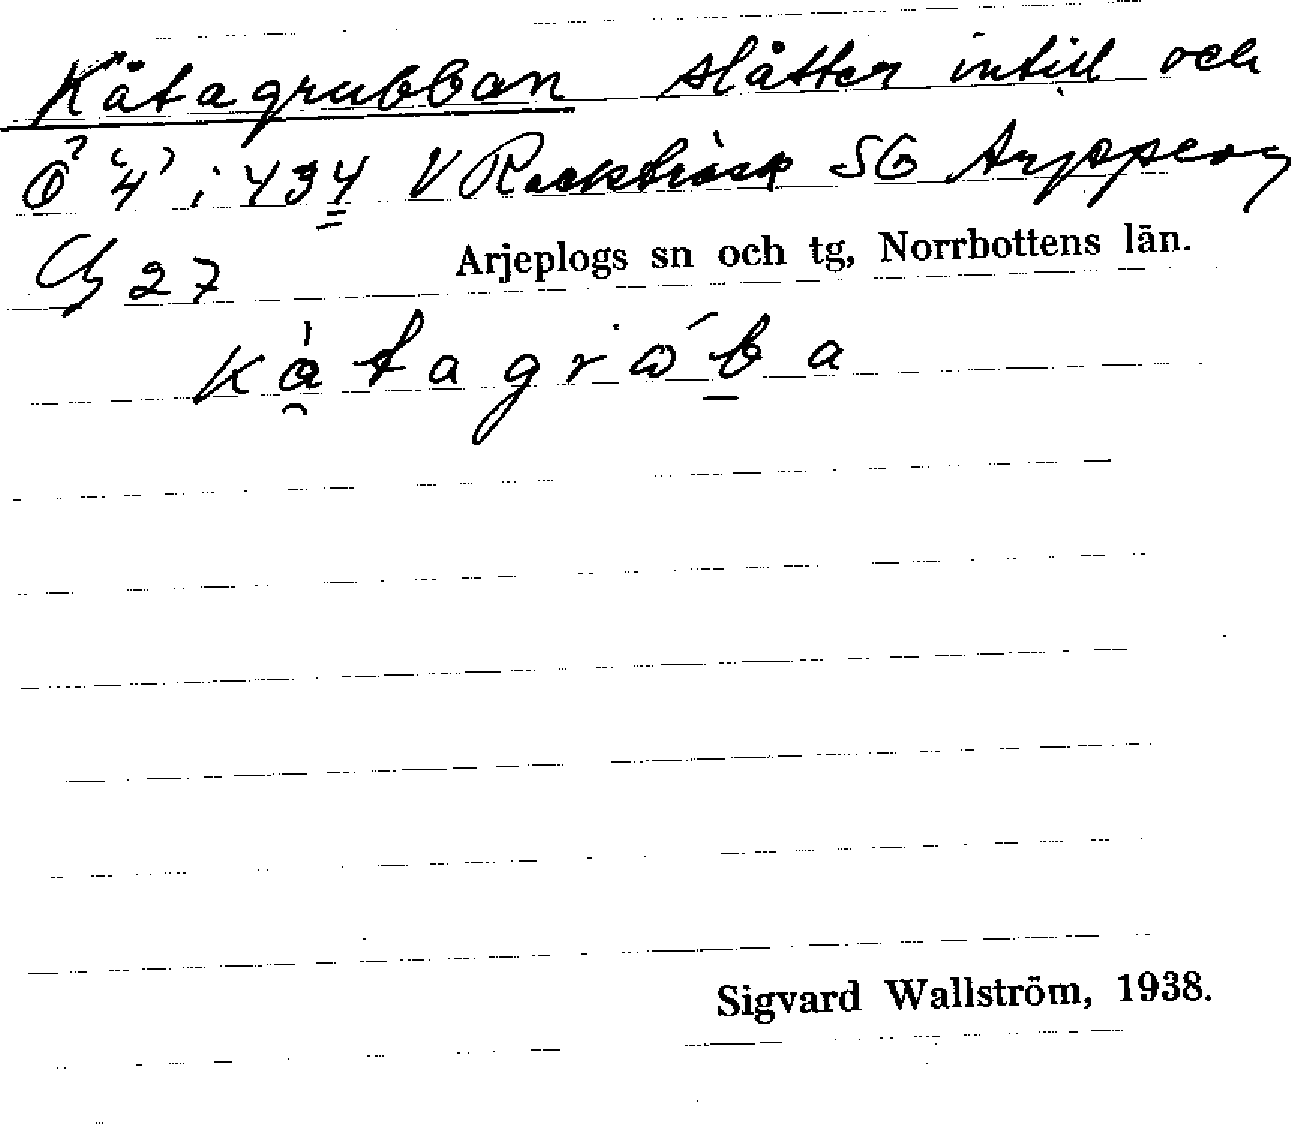 Kåtagrubban slåtter intill och
Ö '4' i 434 V Rackträsk SG Arjeplog
27
Arjeplogs sn och tg, Norrbottens län.
kåtagrωba
Sigvard Wallström, 1938.